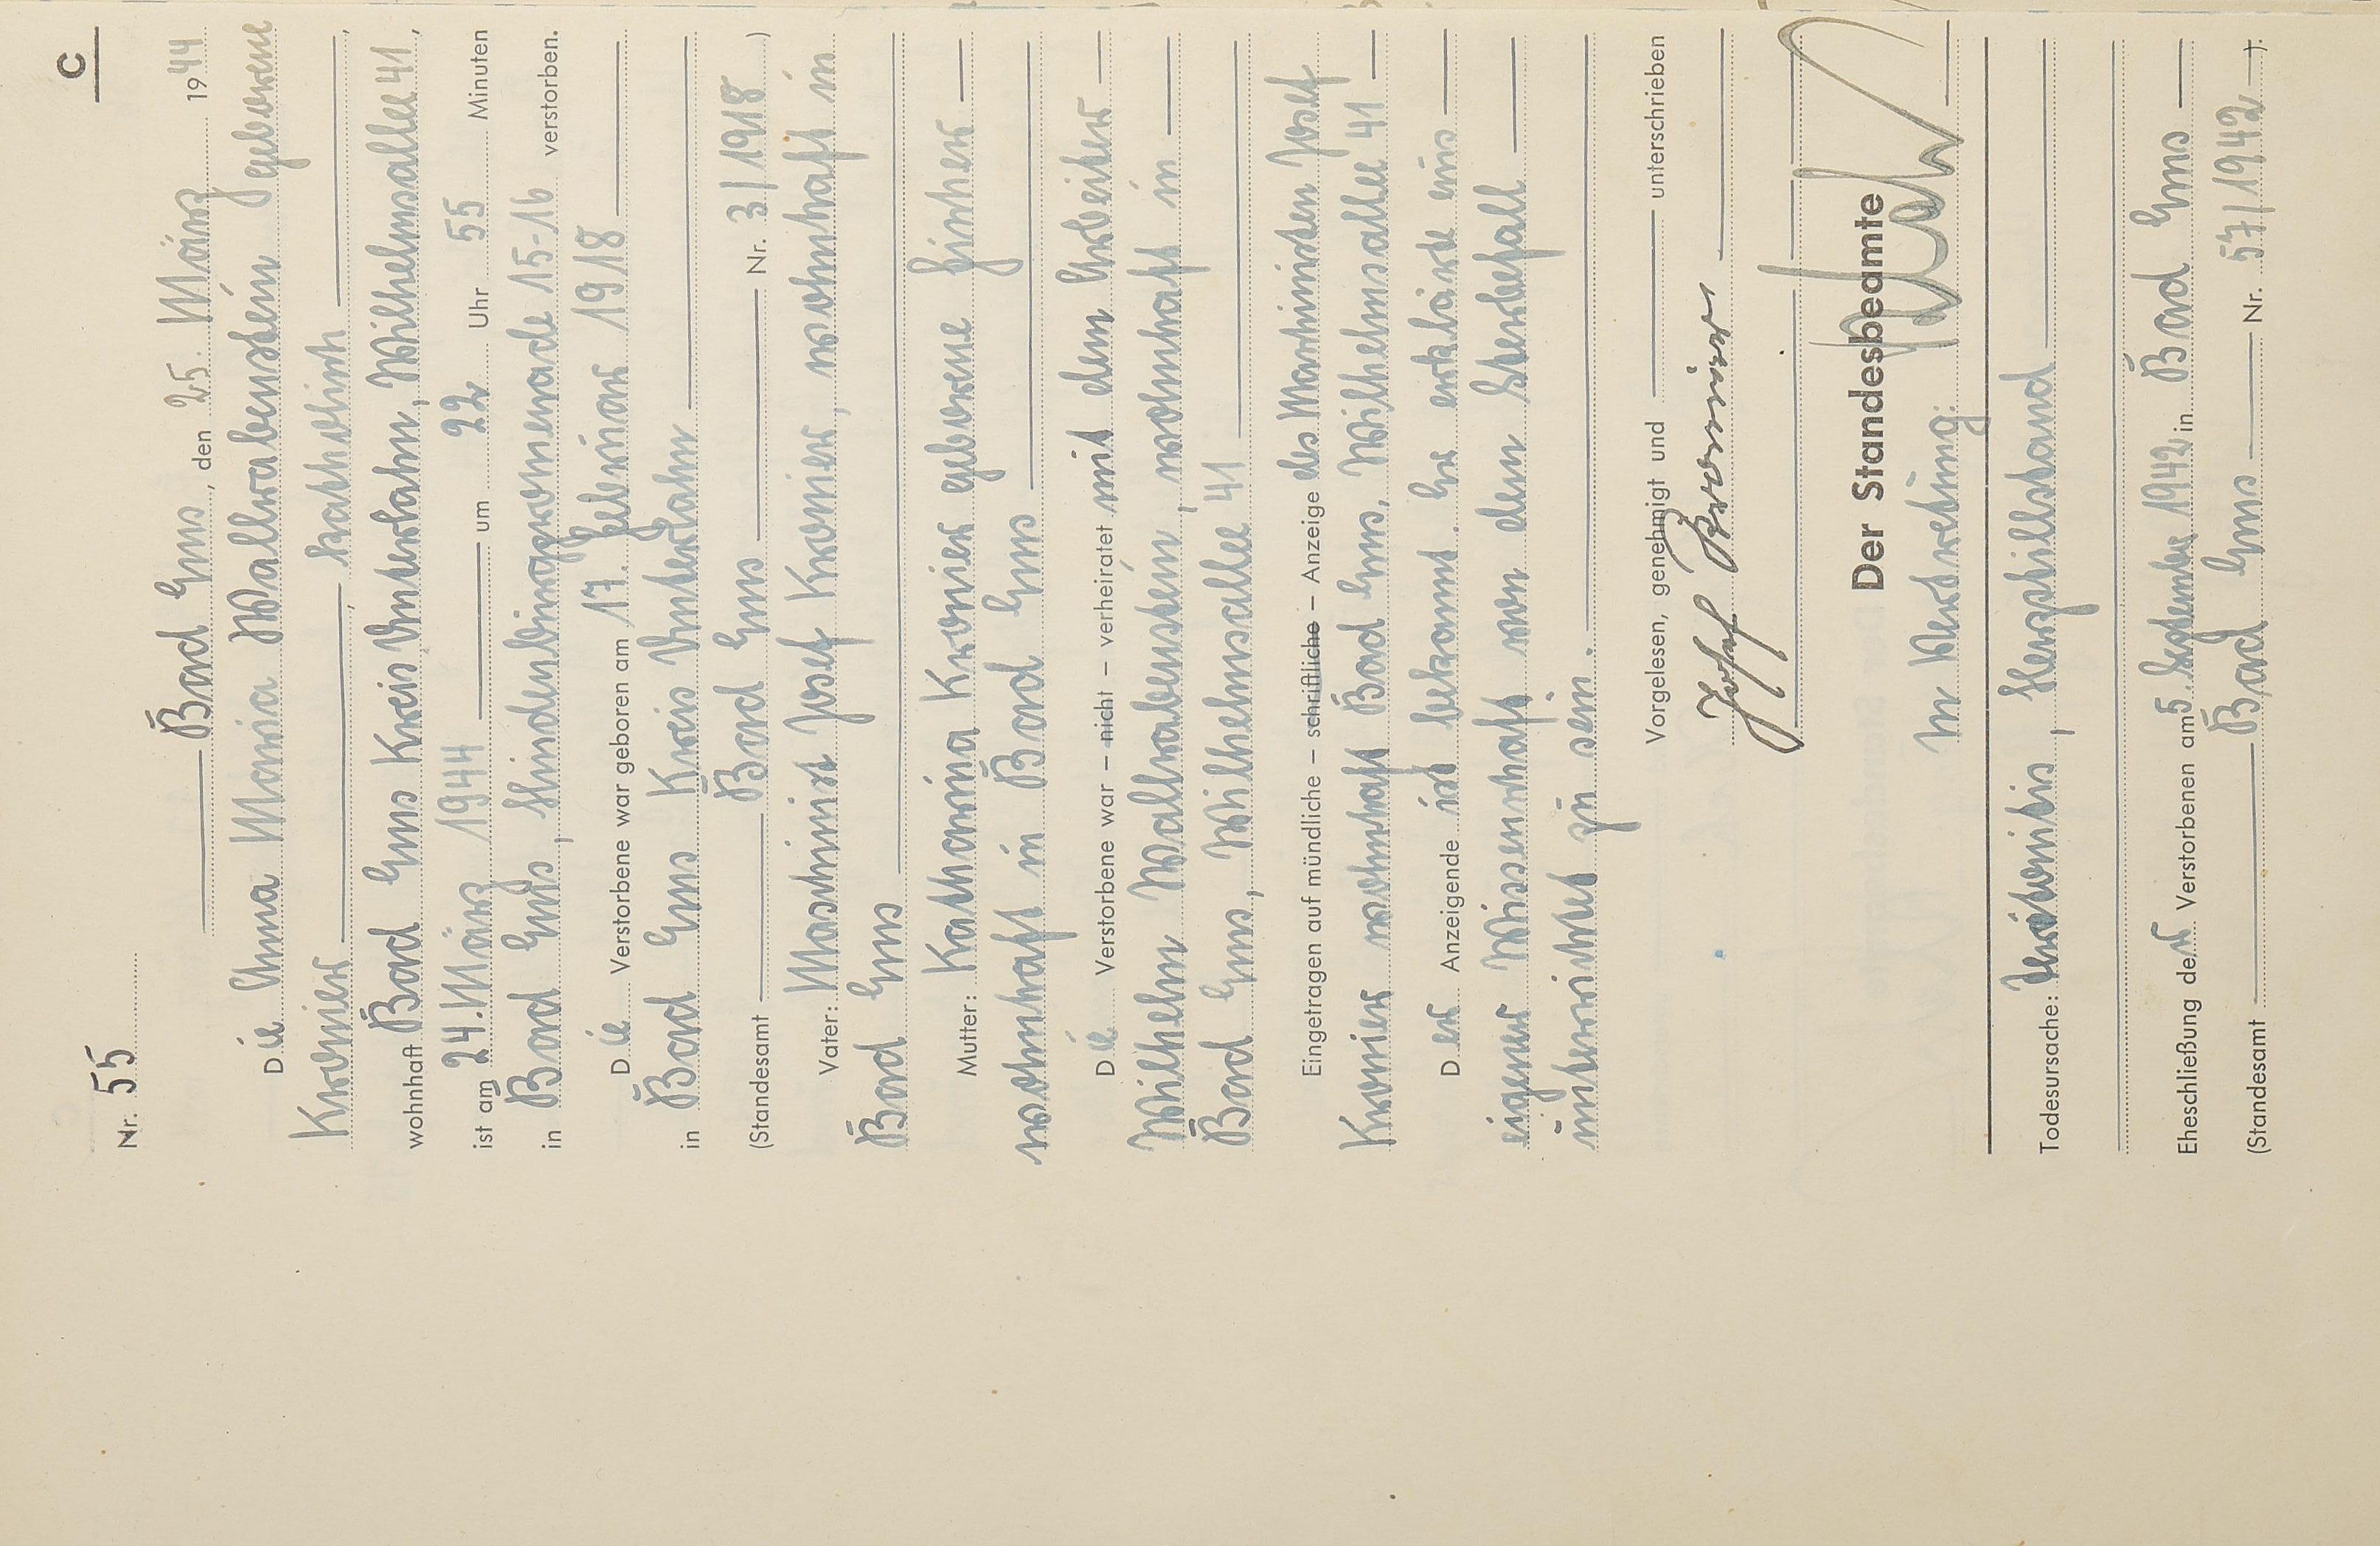 C
Nr. 55
Bad Ems, den 25. März 1944
Die Anna Maria Wallrabenstein geborene
Kronier, katholisch,
wohnhaft Bad Ems Kreis Unterlahn, Wilhelmsallee 41,
ist am 24. März 1944 um 22 Uhr 55 Minuten
in Bad Ems, Hindenburgpromenade 15-16 verstorben.
Die Verstorbene war geboren am 17. Februar 1918
in Bad Ems Kreis Unterlahn
(Standesamt Bad Ems Nr. 3/1918)
Vater: Maschinist Josef Kronier, wohnhaft in
Bad Ems
Mutter: Katharina Kronier geborene
wohnhaft in Bad Ems
Die Verstorbene war – nicht – verheiratet mit dem Arbeiter
Wilhelm Wallrabenstein, wohnhaft in
Bad Ems, Wilhelmsallee 41
Eingetragen auf mündliche – schriftliche – Anzeige des Maschinisten Josef
Kronier wohnhaft Bad Ems, Wilhelmsallee 41
Der Anzeigende ist bekannt. Er erklärte aus
eigener Wissenschaft von dem Sterbefall
unterrichtet zu sein.
Vorgelesen, genehmigt und unterschrieben
Josef Kronier
Der Standesbeamte
In Vertretung:
Todesursache: , Herzstillstand
Eheschließung der Verstorbenen am 5. September 1942 in Bad Ems
(Standesamt Bad Ems Nr. 57/1942).